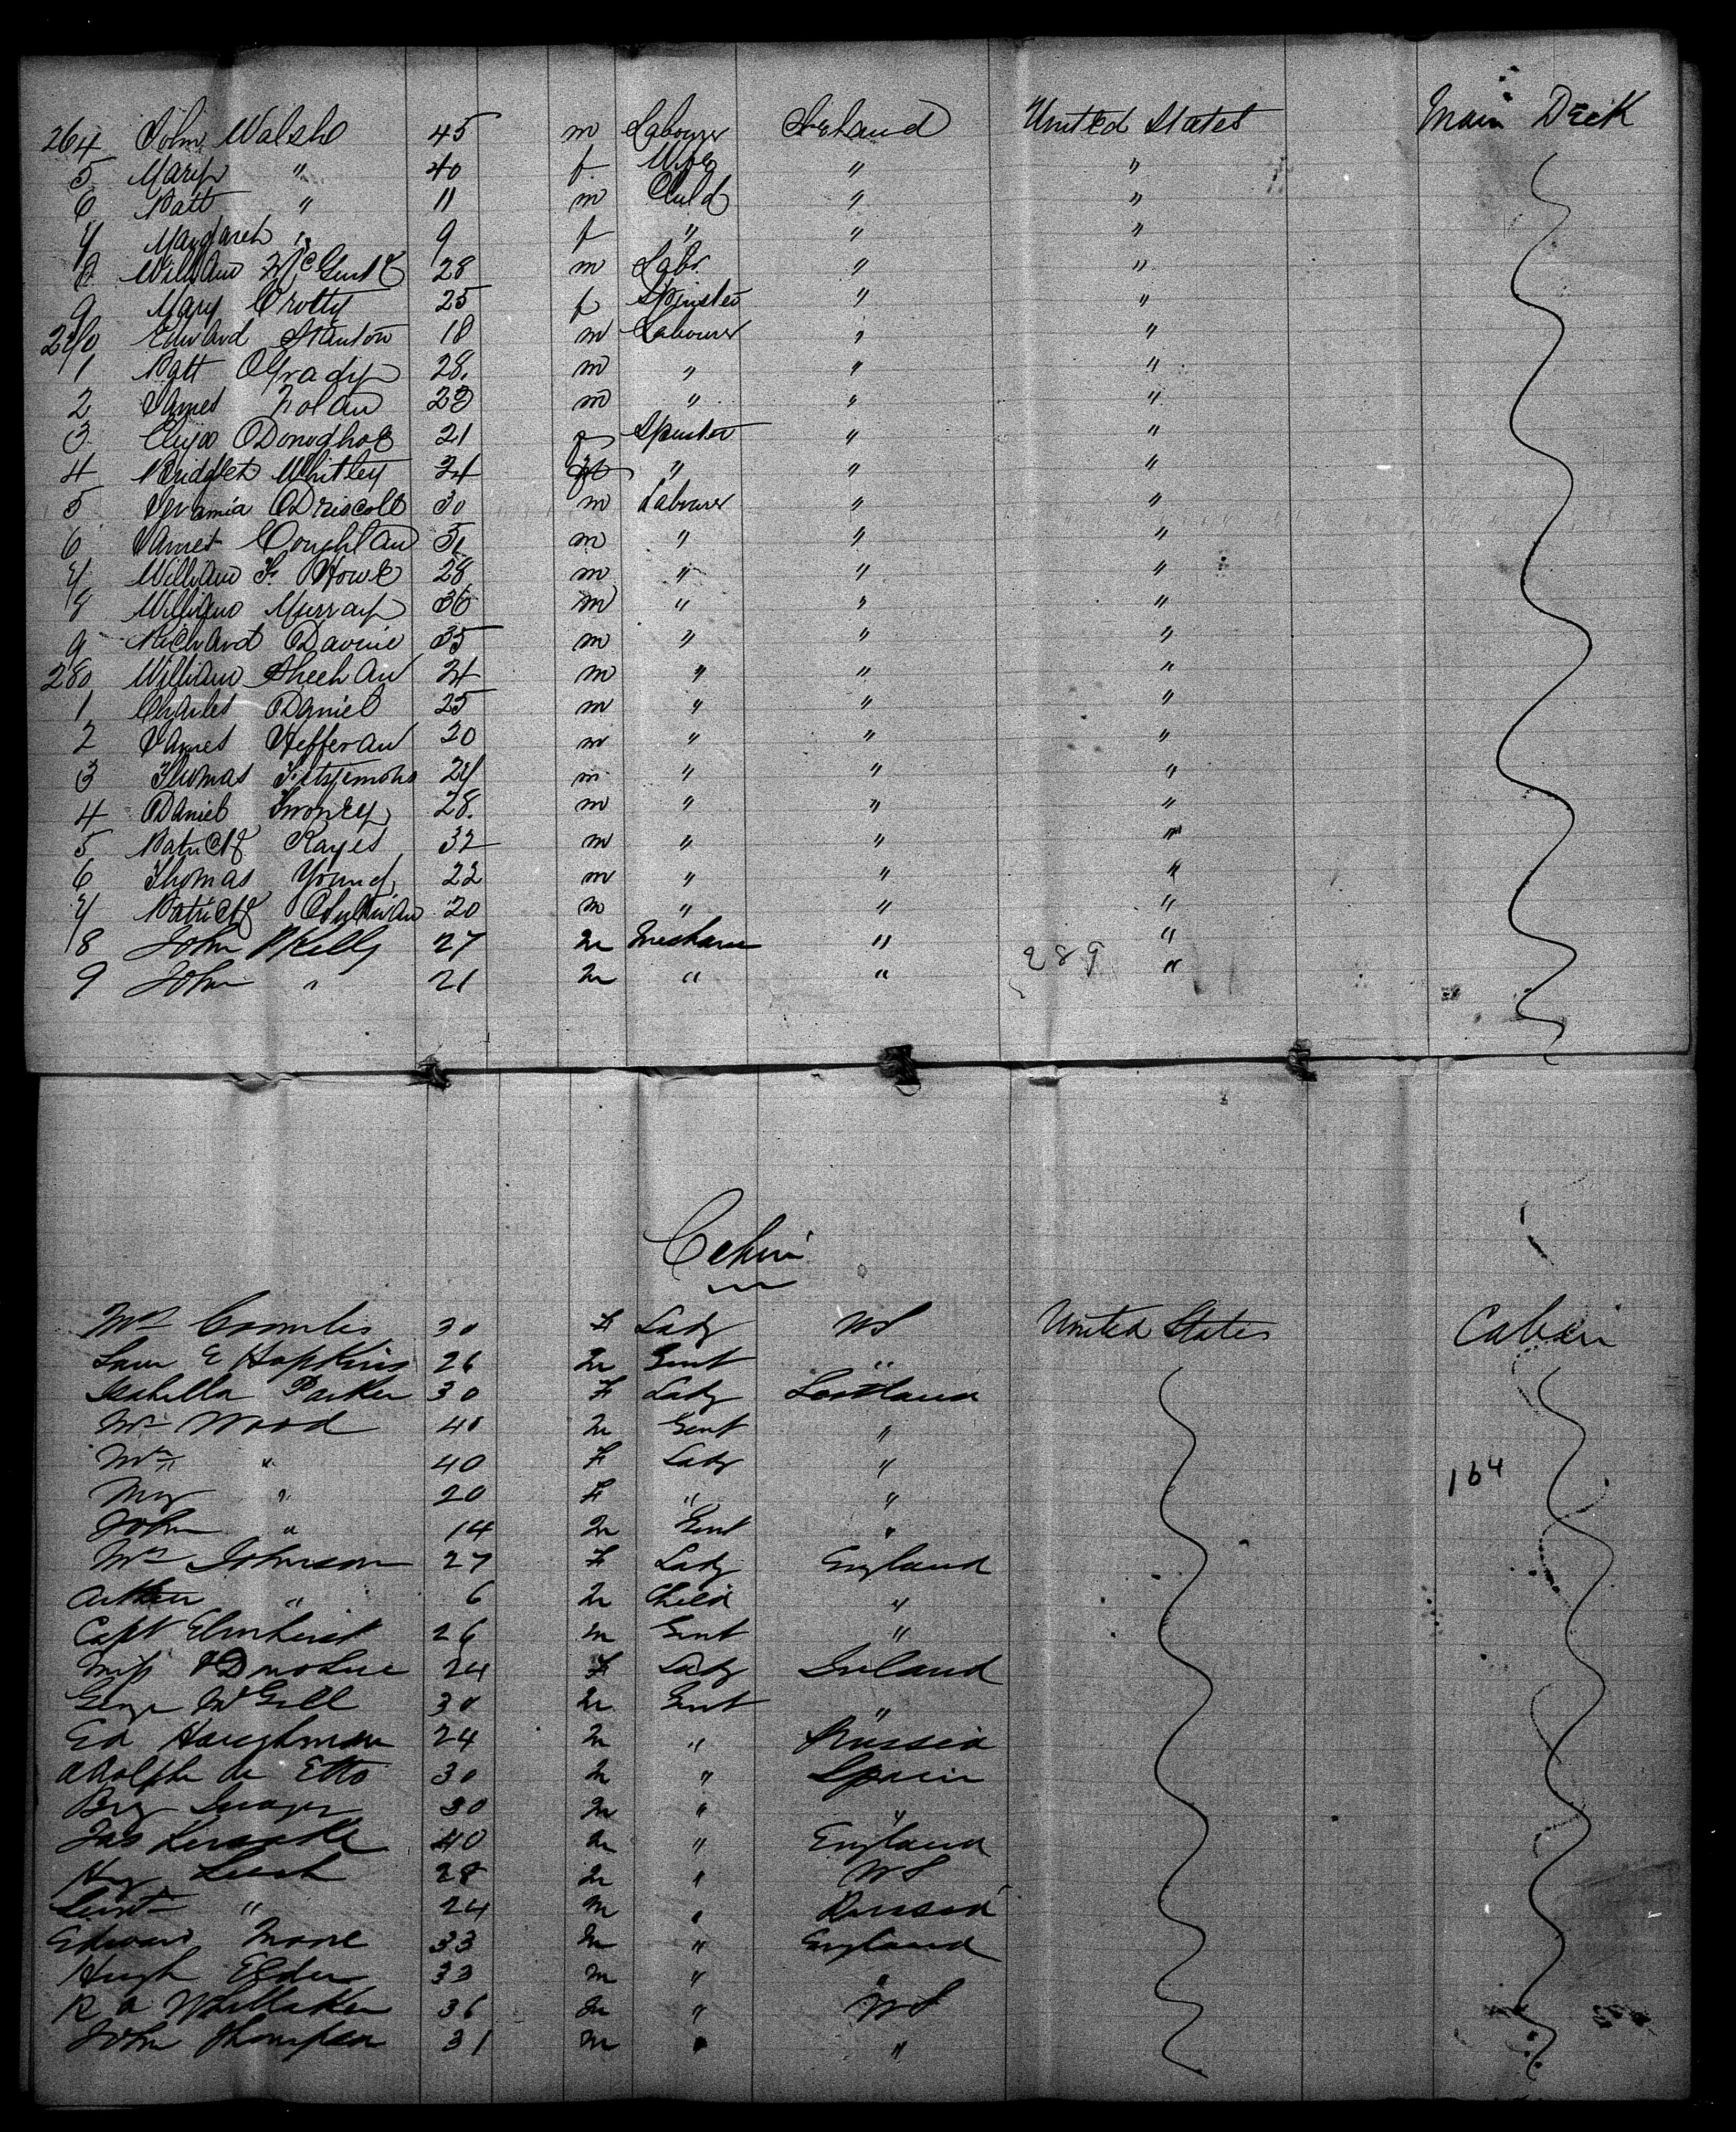 264 John Walsh 45 m Labourer Ireland United States Main Deck
5 Mary " 40 f Wife " "
6 Patt " 11 m Child " "
7 Margaret " 9 f " " "
8 William 28 m Labr " "
9 Mary Crotty 25 f Spinster " "
270 Edward Stanton 18 m Labourer " "
1 Patt OGrady 28. m " " "
2 James Nolan 22 m " " "
3 Eliza ODonoghoe 21 f Spinster " "
4 Bridget Whitley 24 f " " "
5 Jeramia ODriscoll 30 m Labourer " "
6 James Coughlan m " " "
7 William F. Howe 28 m " " "
8 William Murray 36 m " " "
9 Richard Davine 35 m " " "
280 William Sheehan 24 m " " "
1 Charles Daniel 25 m " " "
2 James Heffernan 20 m " " "
3 Thomas Fittsjemons 27 m " " "
4 Daniel Twomey 28. m " " "
5 Patrick Kayes 32 m " " "
6 Thomas Young 22 m " " "
7 Patrick OSullivan 20 m " " "
8 John Kelly 27 m Mechanic " "
9 John " 21 m " " 289 "
Cabin
Mrs Coombes 30 F Lady US United States Cabin
E Hopkins 26 m Gent "
Isabella Parker 30 F Lady Scotland
Mr Wood 40 m Gent "
Mrs " 40 F Lady " 164
May " 20 F " "
John " 14 m Gent "
Mrs Johnson 27 F Lady England
Arthur " 6 m Child "
Capt Elmhirst 26 m Gent "
Miss ODonohue 24 F Lady Ireland
George McGill 30 m Gent "
Ed Haughman 24 m " Russia
Adolphe de Etto 30 m " Spain
30 m " "
Jas 40 m " England
Hy 28 m " US
" 24 m " Russia
Edward Moore 33 m " England
Hugh Elder 33 m " "
R A Whittaker 36 m " US
John Thompson 31 m " "